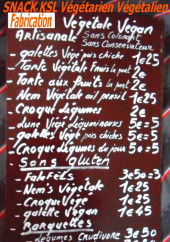 SNACK KSL Végétarien Végétalien
Fabrication
Végétale Vegan
Artisanale Sans Colorant
Sans Conservateur
- galettes Végé pois chiche 1€25
- Tarte Végétale fruits la part 2€
- Tarte aux fruits la part 2€
- Nem Végétale ail persil 1€25
- Croque Légumes 2€
- dune Végé Légumineuses 5€=5
- galettes Végé pois chiches 5€=5
- Croque Légumes du jour 5€=5
- Sans gluten
- Falafels 3e50=3
- Nem's Végétale 1€25
- Croque Végé 1€25
- galette Végan 1€45
- Barquettes
- Légumes Crudivore 3e50